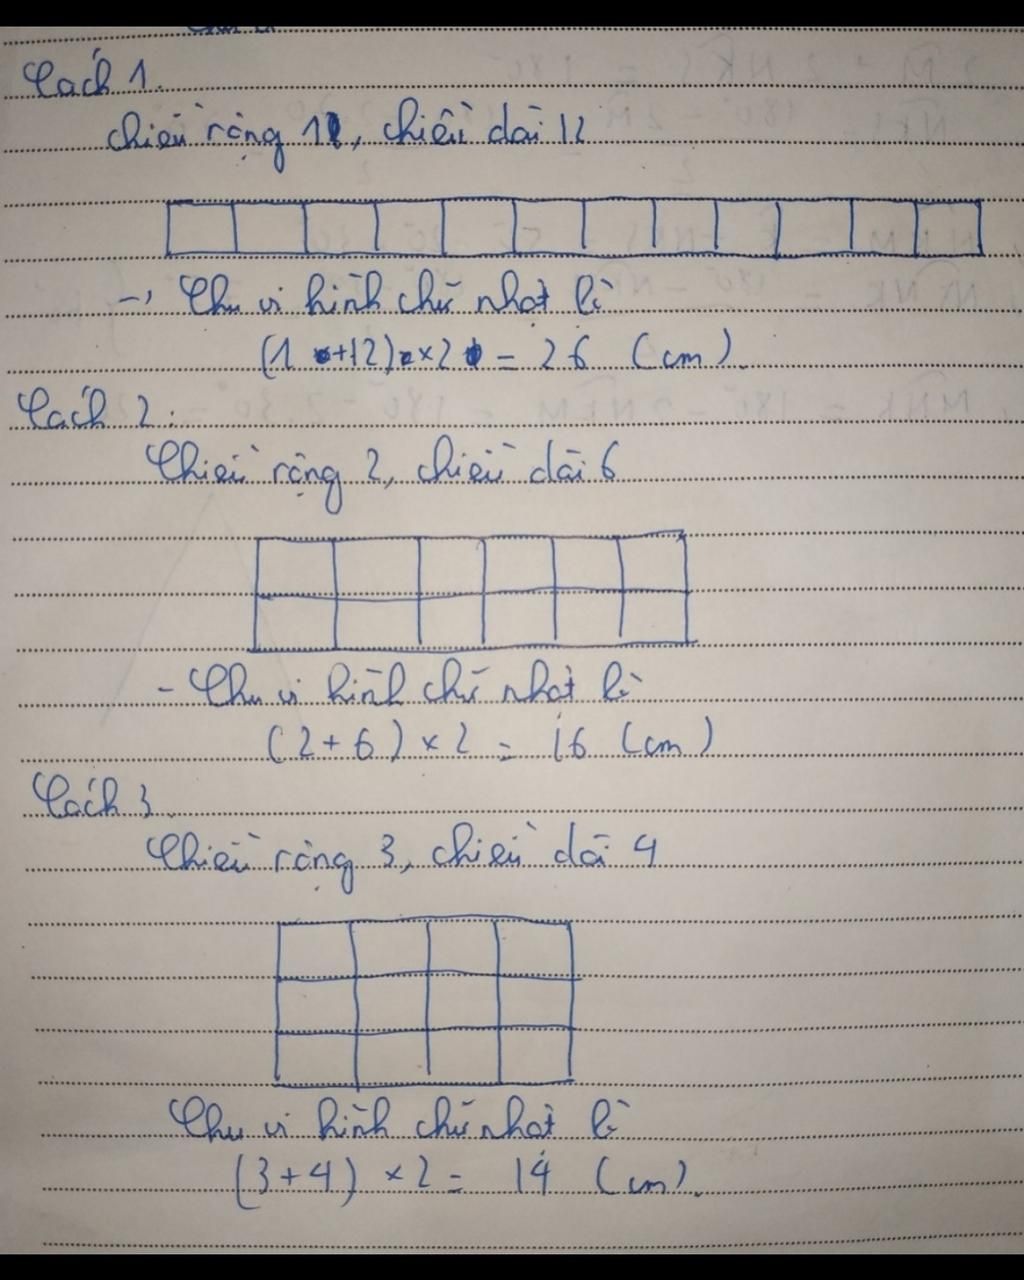 Cách 1.
chiều rộng 1, chiều dài 12
→ Chu vi hình chữ nhật là
(1 +12) ×2 = 26 (cm).
Cách 2:
Chiều rộng 2, chiều dài 6
- Chu vi hình chữ nhật là
(2+6) ×2 = 16 (cm)
Cách 3.
Chiều rộng 3, chiều dài 4
Chu vi hình chữ nhật là
(3+4) ×2 = 14 (cm).